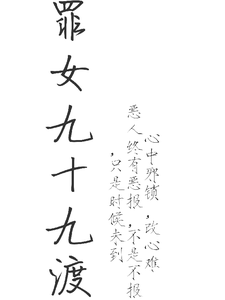 心中邪锁,改心难
恶人终有恶报,不是不报
,只是时候未到
罪女九十九渡